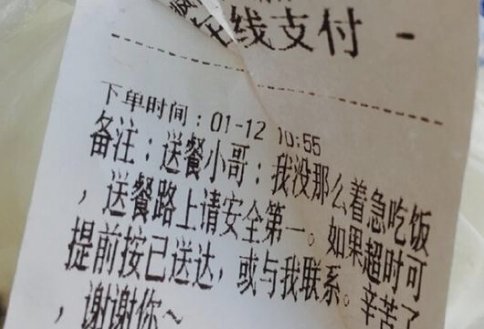 在线支付 -
下单时间：01-12 10:55
备注：送餐小哥：我没那么着急吃饭
，送餐路上请安全第一。如果超时可
提前按已送达，或与我联系。辛苦了
，谢谢你~